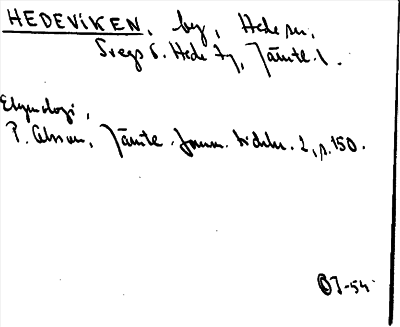 HEDEVIKEN, by, Hede sn,
Svegs o. Hede tg, Jämtl. l.
Etymologi,
P. Olsson, Jämtl. 2, s. 150.
OJ-54